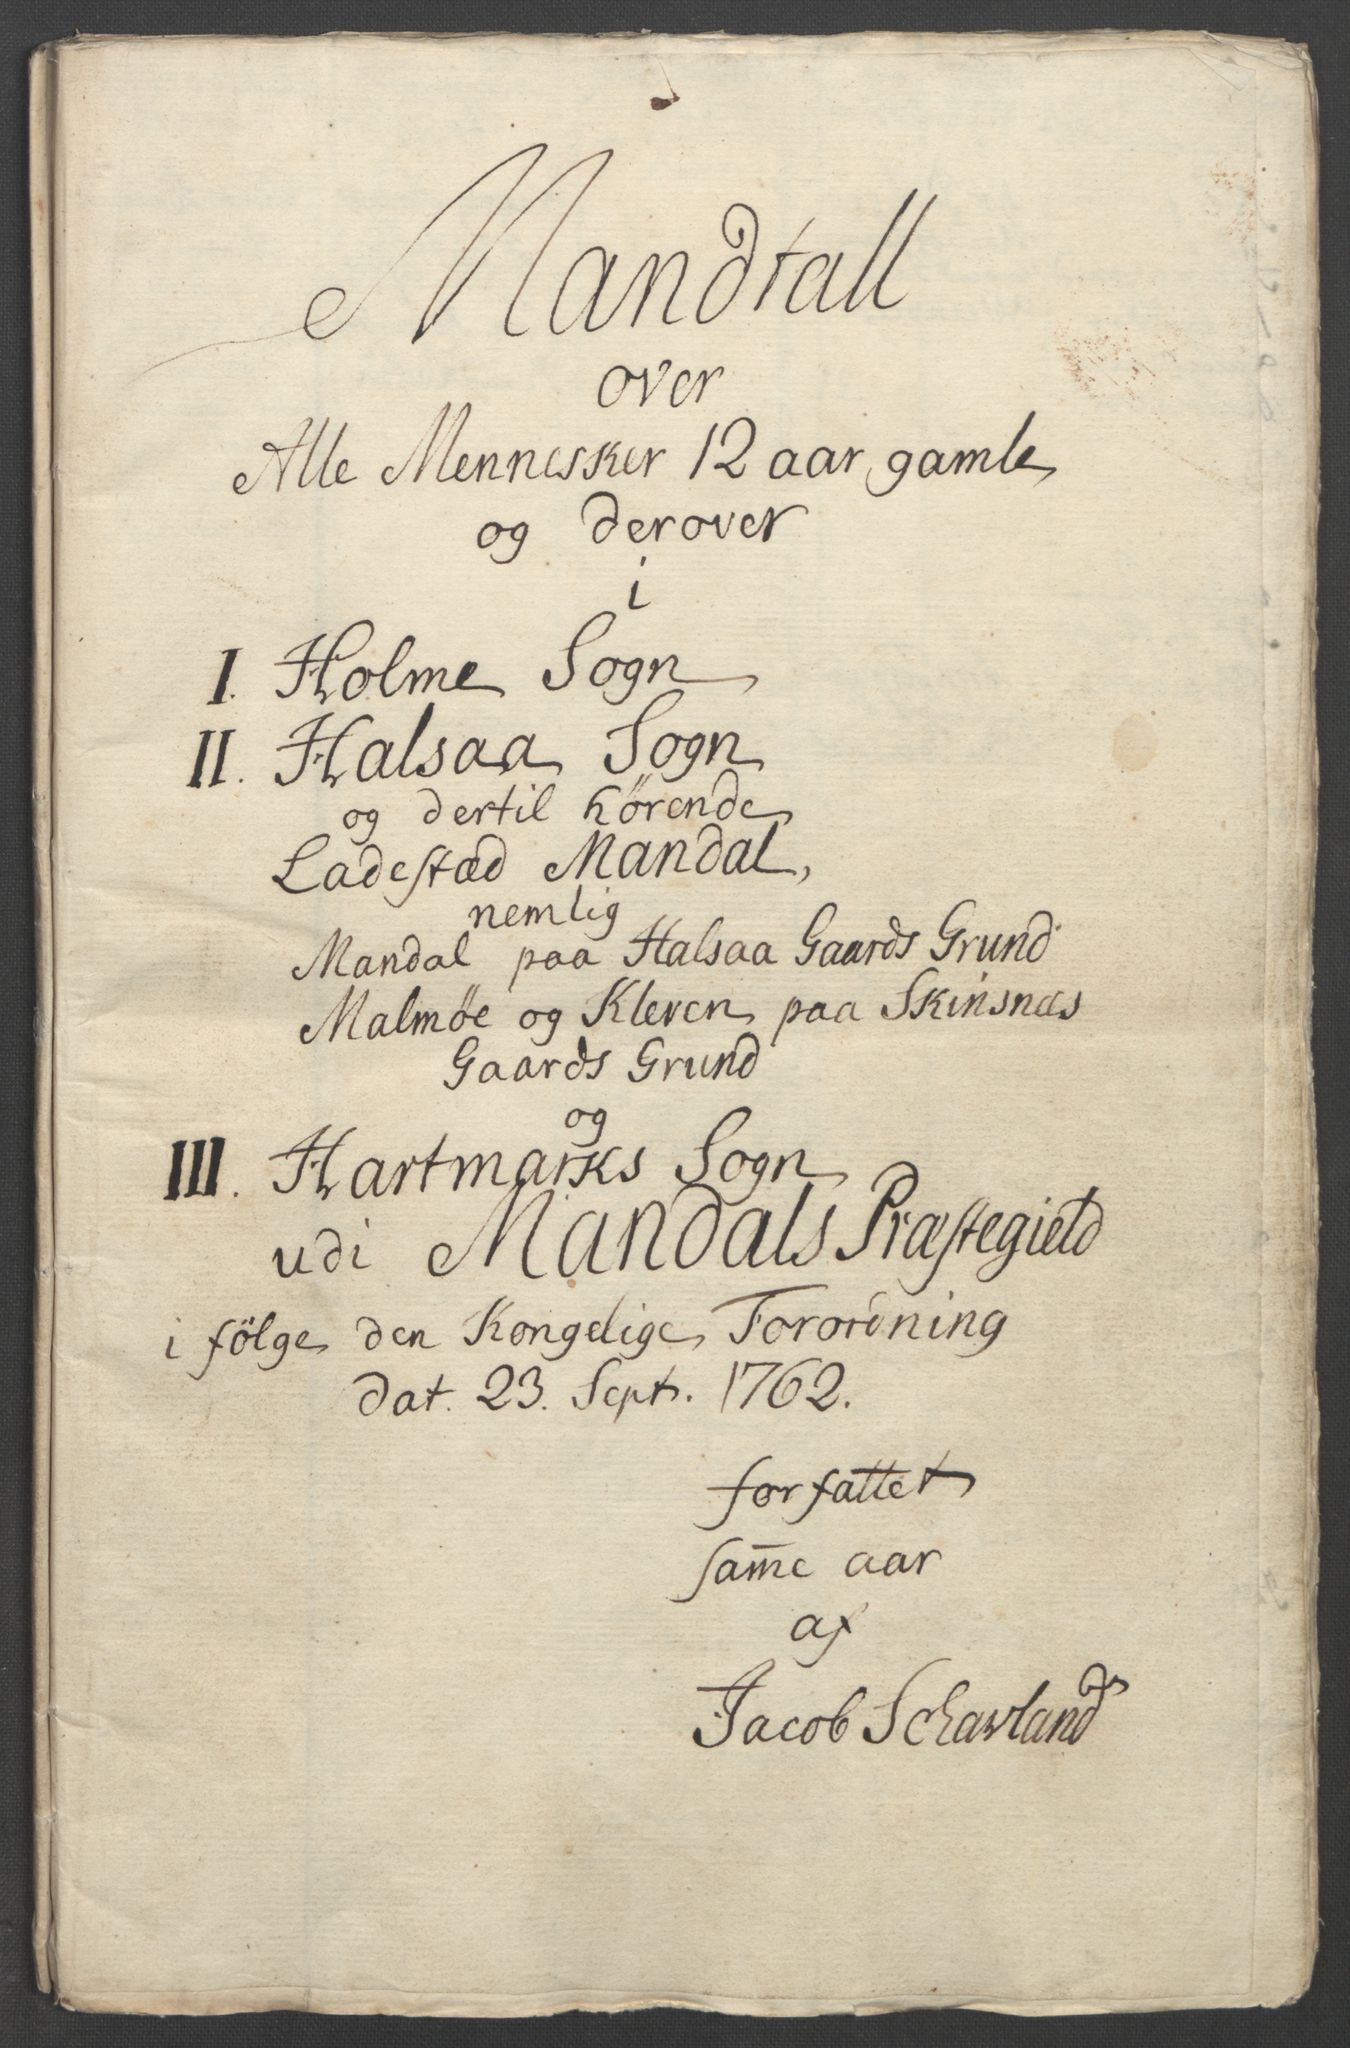 Mandtall
over
Alle Mennesker 12 aar gamle
og derover
i
I. Holme Sogn
II. Halsaa Sogn
og dertil hörende
Ladestæd Mandal,
nemlig
Mandal paa Halsaa Gaards Grund
Malmöe og Kleven paa Skinsnæs
Gaards Grund
og
III. Hartmarks Sogn
udi Mandals Præstegield
i fölge den Kongelige Forordning
dat. 23. Sept. 1762.
forfattet
sam̄e aar
af
Jacob Schavland